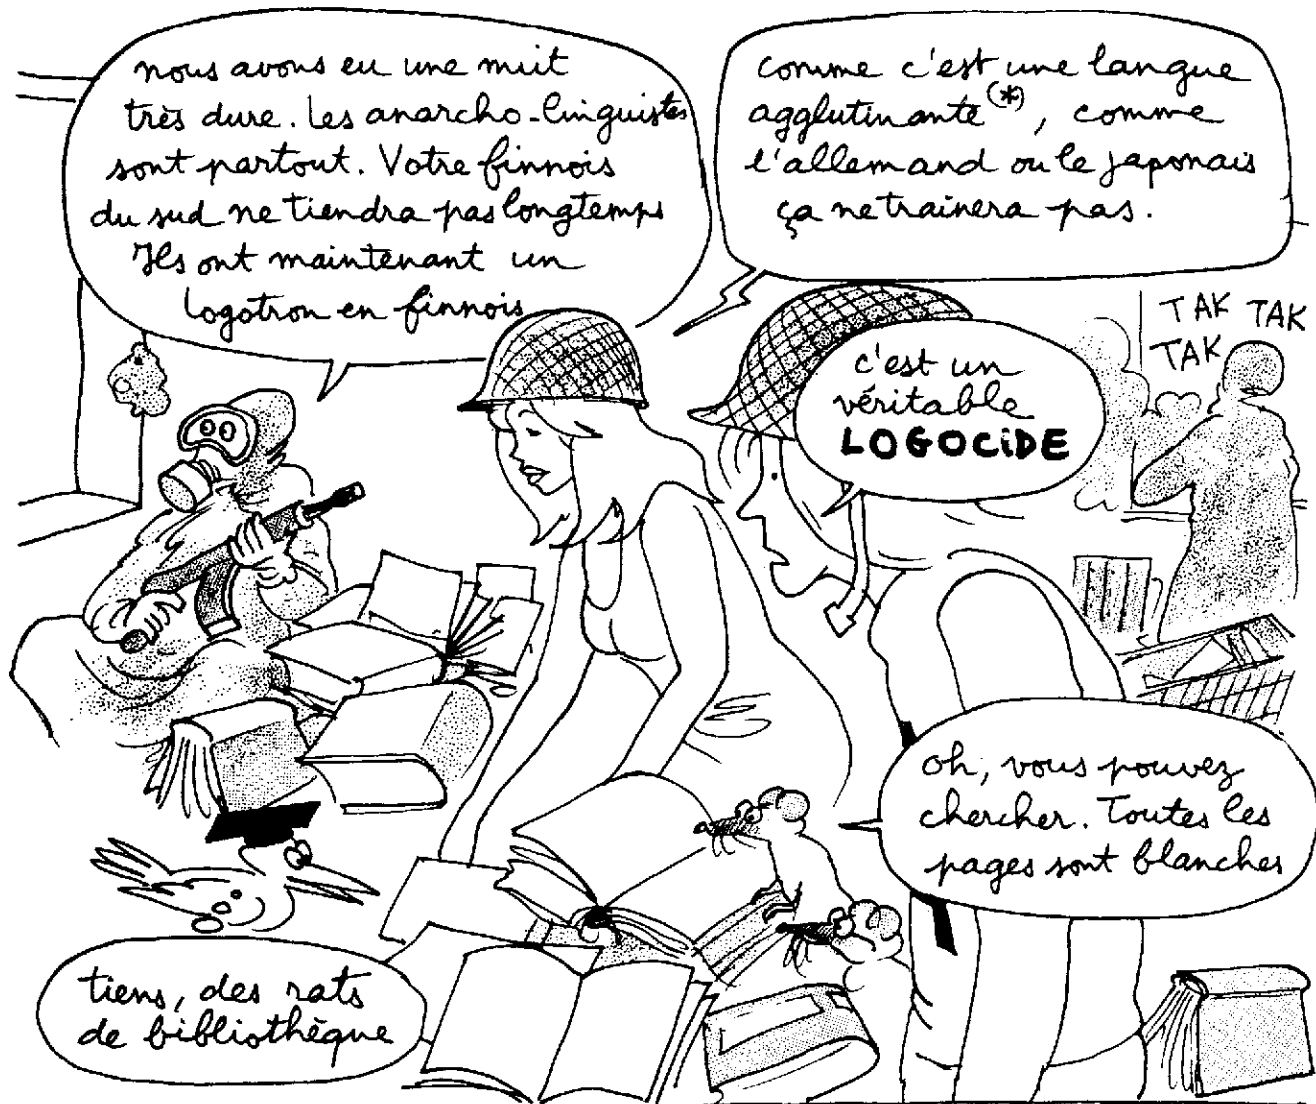 nous avons eu une nuit
très dure. Les anarcho-linguistes
sont partout. Votre finnois
du sud ne tiendra pas longtemps
Ils ont maintenant un
logotron en finnois
comme c'est une langue
agglutinante(*), comme
l'allemand ou le japonais
ça ne trainera pas.
TAK TAK
TAK
c'est un
véritable
LOGOCiDE
oh, vous pouvez
chercher. Toutes les
pages sont blanches
tiens, des rats
de bibliothèque